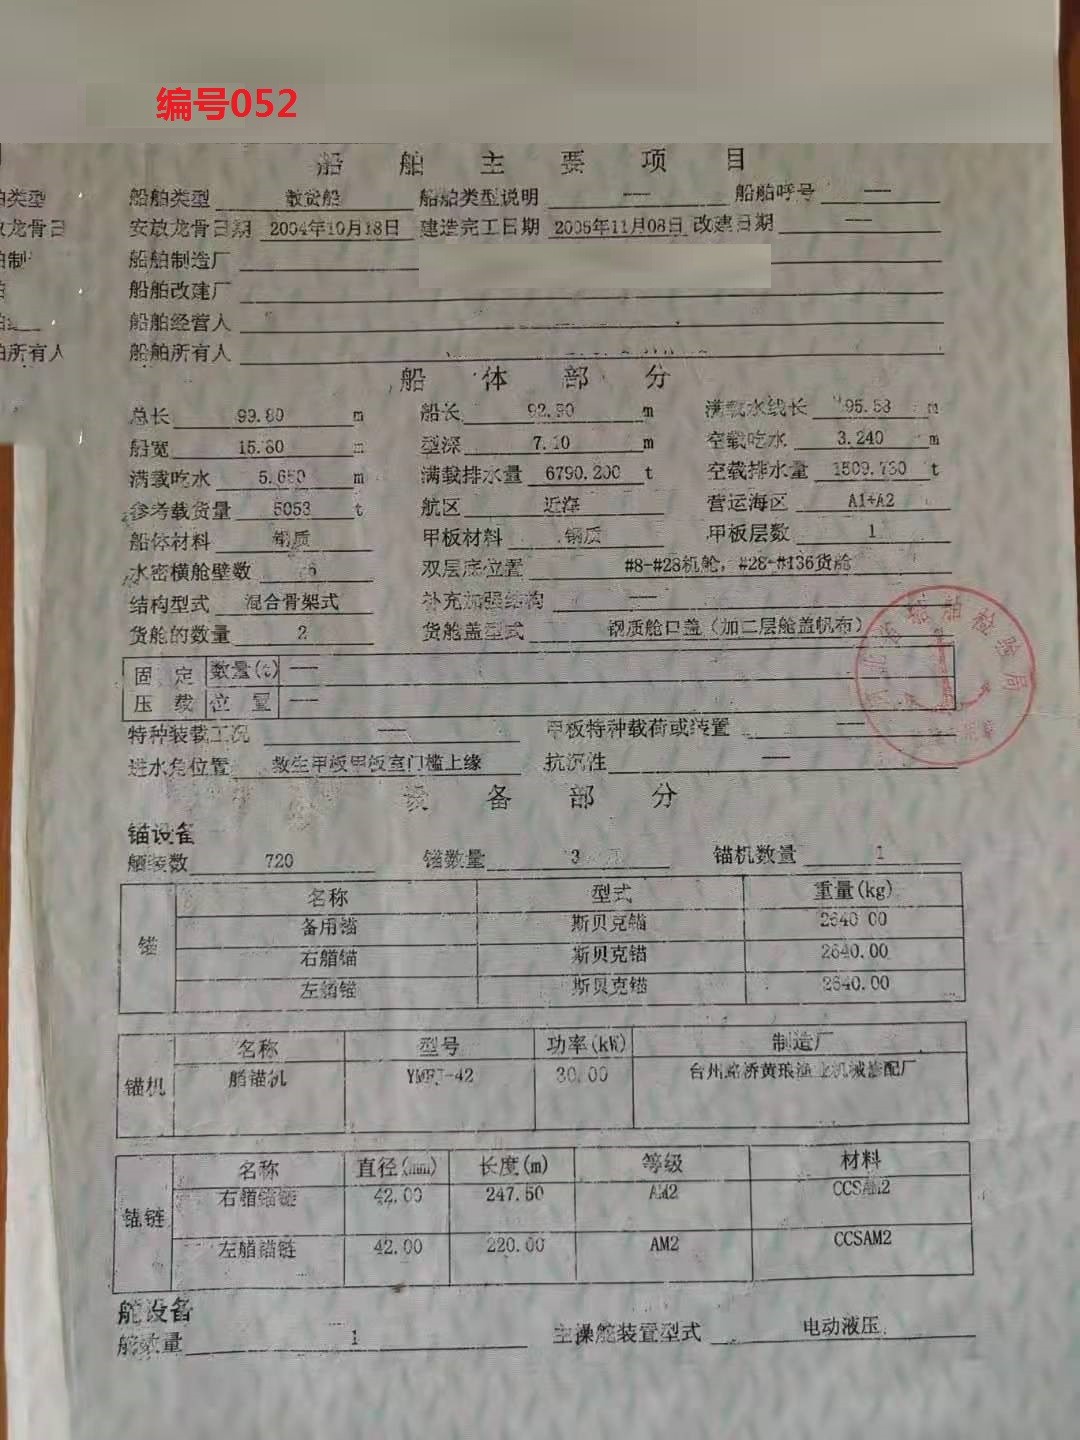 编号052
船舶主要项目
船舶类型 散货船 船舶类型说明 —— 船舶呼号 ——
安放龙骨日期 2004年10月18日 建造完工日期 2005年11月08日 改建日期 ——
船舶制造厂
船舶改建厂
船舶经营人
船舶所有人
船体部分
总长 99.80 m 船长 92.90 m 满载水线长 95.53 m
船宽 15.80 m 型深 7.10 m 空载吃水 3.240 m
满载吃水 5.650 m 满载排水量 6790.200 t 空载排水量 t
参考载货量 5053 t 航区 近海 营运海区 A1+A2
船体材料 钢质 甲板材料 钢质 甲板层数 1
水密横舱壁数 6 双层底位置 #8-#28机舱，#28-#136货舱
结构型式 混合骨架式 补充加强结构 ——
货舱的数量 2 货舱盖型式 钢质舱口盖（加二层舱盖帆布）
固定 数量(t) ——
压载 位置 ——
特种装载工况 —— 甲板特种载荷或装置 ——
进水角位置 救生甲板甲板室门槛上缘 抗沉性 ——
设备部分
锚设备
舾装数 720 锚数量 3 锚机数量 1
名称 型式 重量(kg)
锚
备用锚 斯贝克锚 2640.00
右艏锚 斯贝克锚 2640.00
左艏锚 斯贝克锚 2640.00
名称 型号 功率(kW) 制造厂
锚机 艏锚机 30.00 台州路桥黄琅渔业机械装配厂
名称 直径(mm) 长度(m) 等级 材料
锚链
右艏锚链 42.00 247.50 AM2 CCSAM2
左艏锚链 42.00 220.00 AM2 CCSAM2
舵设备
舵数量 1 主操舵装置型式 电动液压
船舶检验局